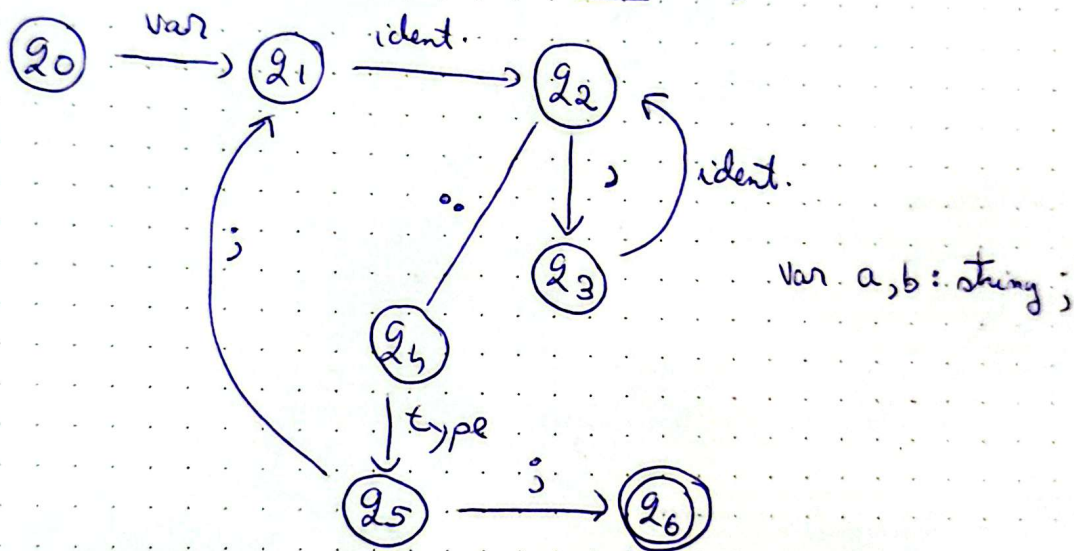 var ident.
q0 q1 q2
, ident.
:
;
q3
var a,b: string;
q4
type
;
q5 q6